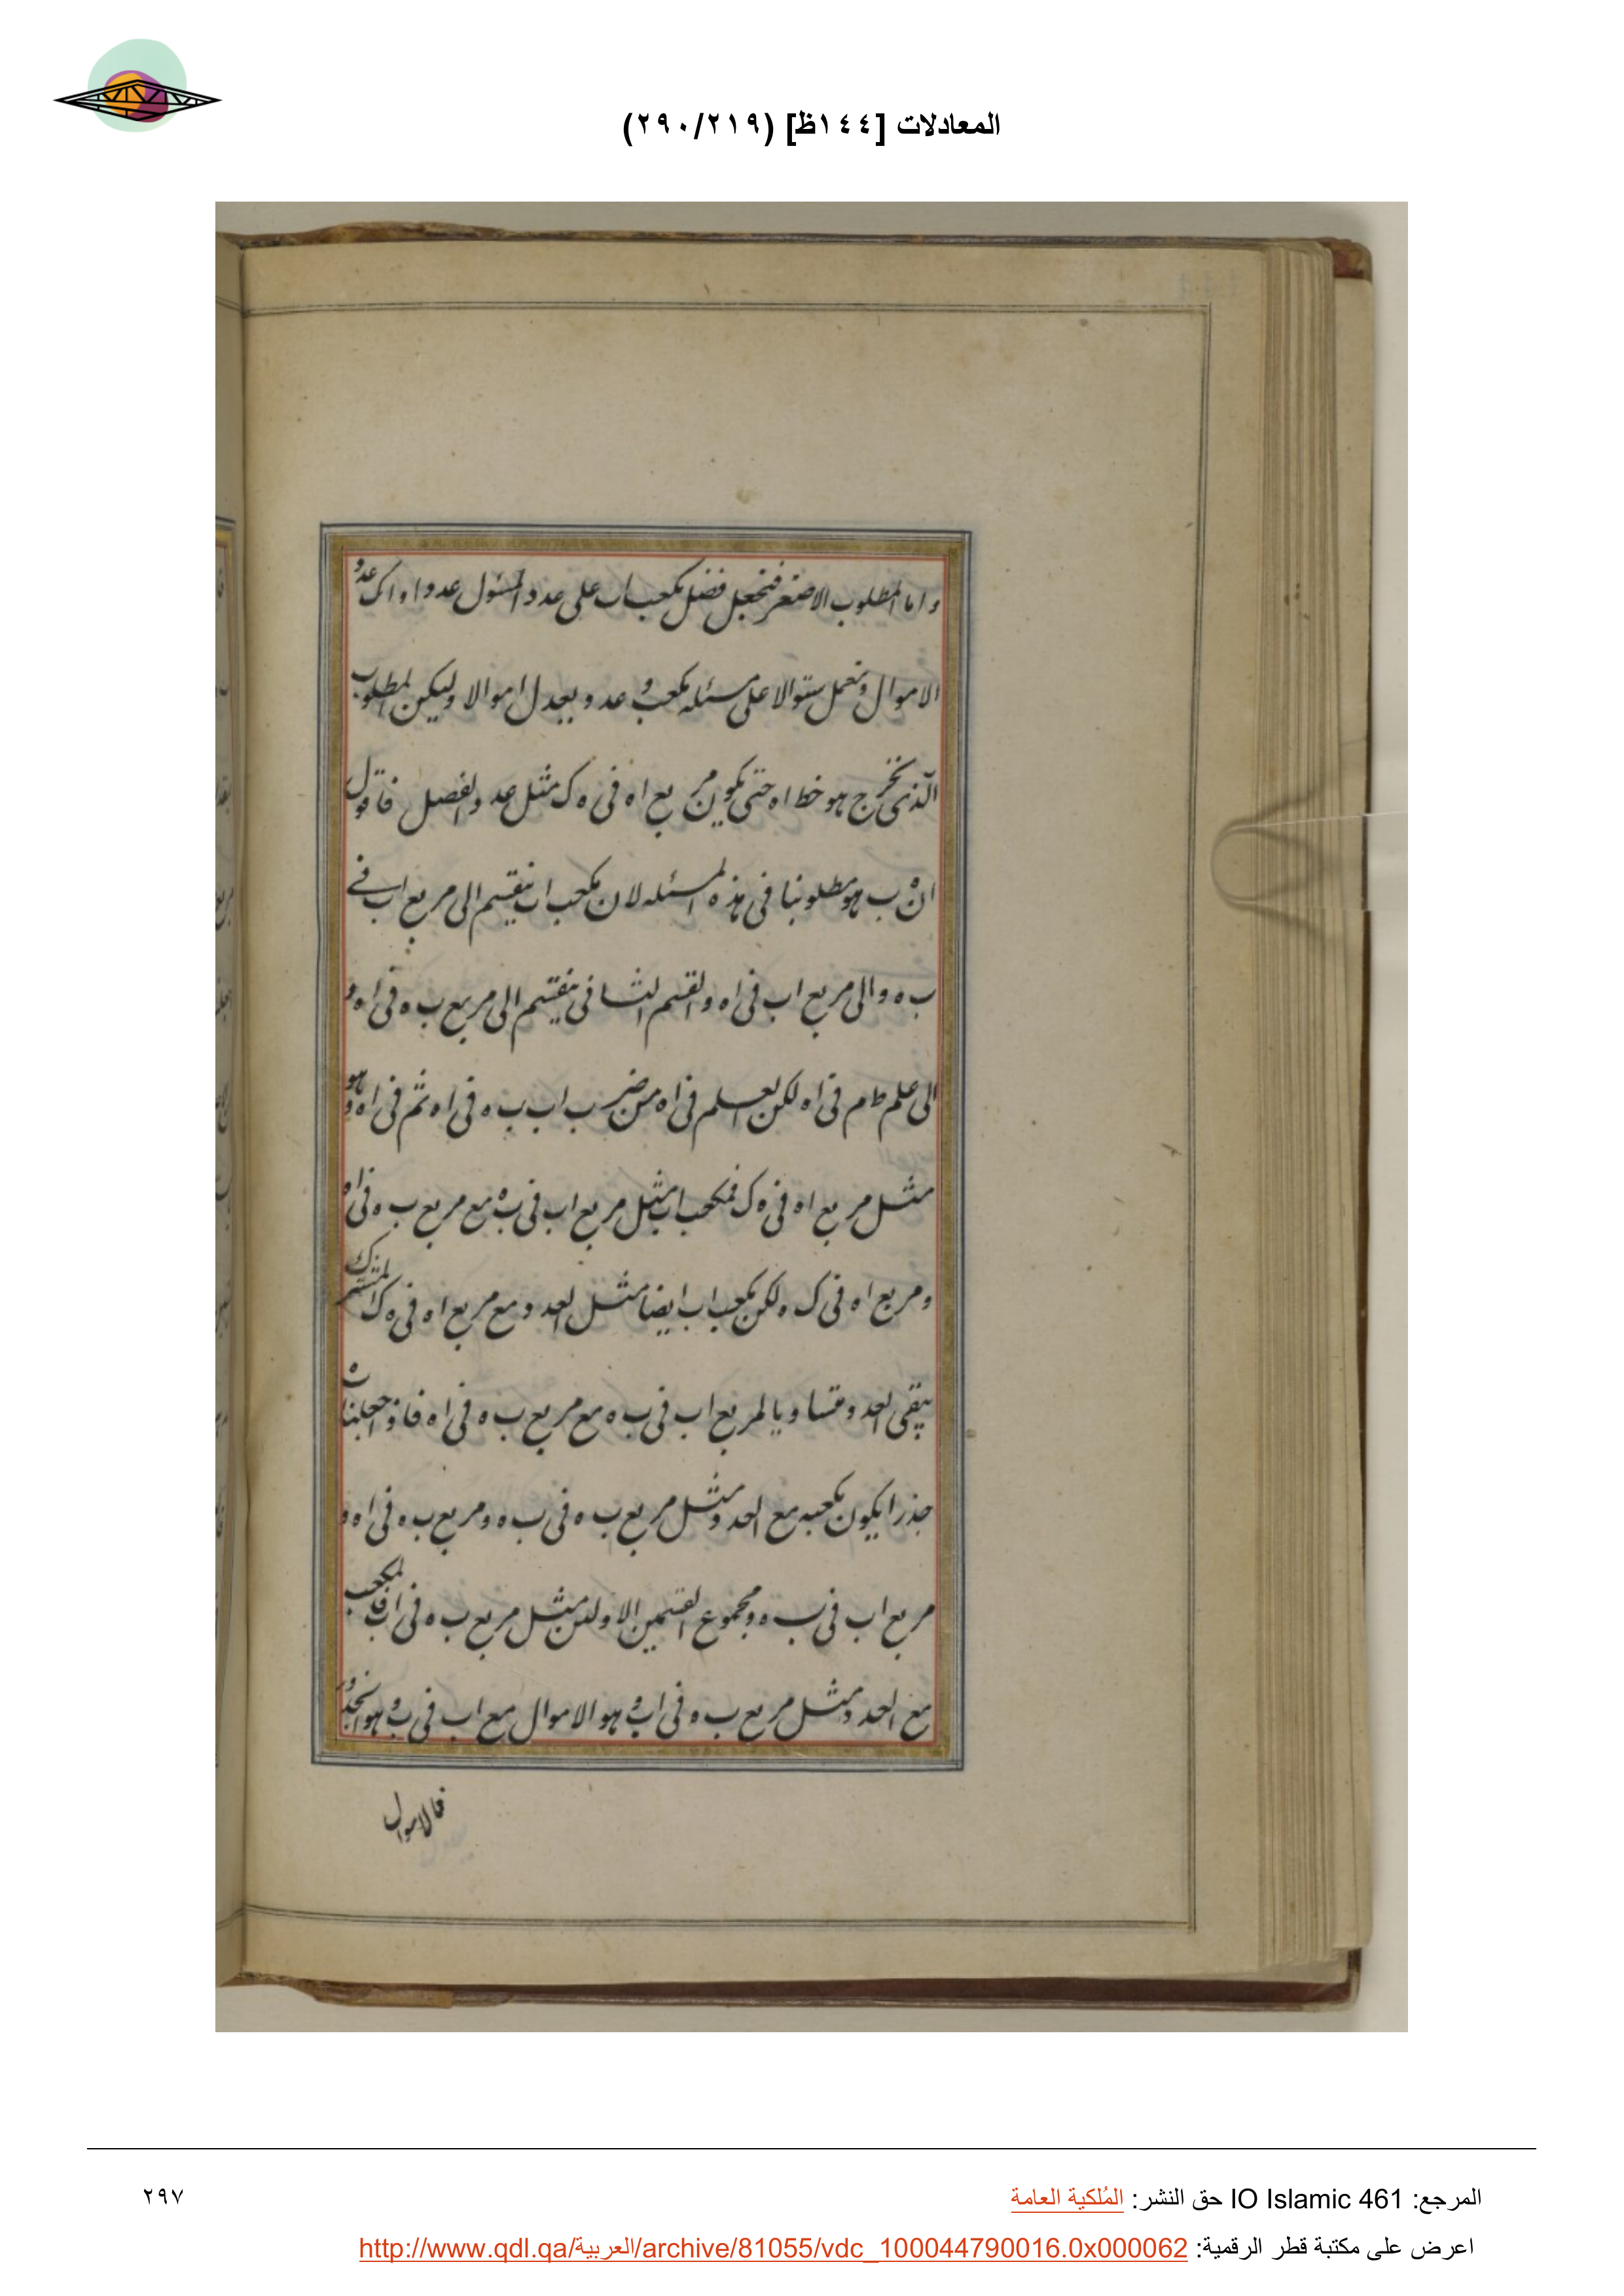 المعادلات [١٤٤ظ] (٢٩٠/٢١٩)
واما المطلوب الاصغر فنجعل فضل مكعب اب على عدد المسئول عددا و اك عدد
الاموال ونعمل سئوالا على مسئله مكعب و عدد يعدل اموالا وليكن المطلوب
الذى يخرج هو خط اه حتى يكون مربع اه فى ه ك مثل عدد الفصل فاقول
ان ه ب هو مطلوبنا فى هذه المسئله لان مكعب اب ينقسم الى مربع اب فے
ب ه والى مربع اب فى اه والقسم الثانى ينقسم الى مربع ب ه فى اه و
الى علم ط م فى اه لكن العلم فى اه من ضرب اب ب ه فى اه ثم فى اه وهو
مثل مربع اه فى ه ك فمكعب اب مثل مربع اب فى ب ه مع مربع ب ه فى اه
ومربع اه فى ك ه لكن مكعب اب ايضا مثل العدد مع مربع اه فى ه ك المشترك
يبقى العدد متساويا لمربع اب فى ب ه مع مربع ب ه فى اه فاذا جعلنا ب ه
جذرا يكون مكعبه مع العدد مثل مربع ب ه فى ب ه ومربع ب ه فى اه و
مربع اب فى ب ه ومجموع القسمين الاولين مثل مربع ب ه فى اب فالمكعب
مع العدد مثل مربع ب ه فى اب و هو الاموال مع اب فى ب ه و هو الجذور
فالاموال
المرجع: IO Islamic 461 حق النشر: المُلكية العامة
٢٩٧
اعرض على مكتبة قطر الرقمية: http://www.qdl.qa/العربية/archive/81055/vdc_100044790016.0x000062